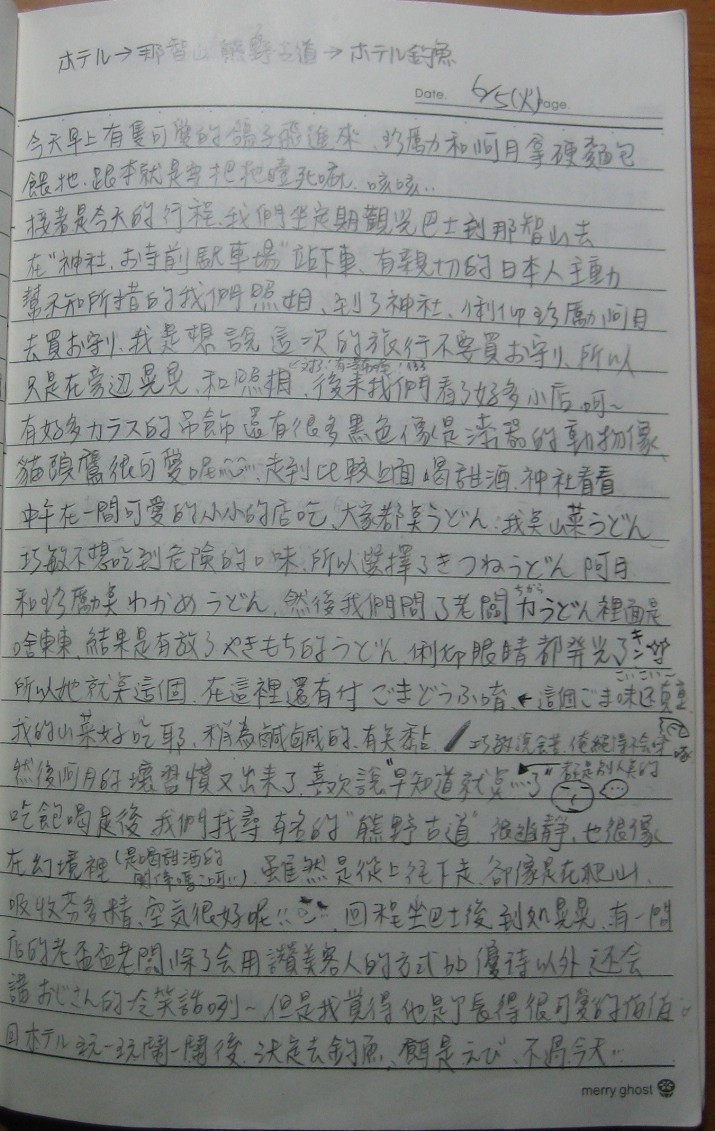 ホテル→那智山 熊野古道→ホテル釣魚
Date. 6/5(火) Page.
今天早上有隻可愛的鴿子飛進來、珍勵和阿月拿硬麵包
餵牠.跟本就是要把牠噎死嘛.咳咳..
接著是今天的行程.我們坐定期觀光巴士到那智山去
在"神社.お寺前駐車場"站下車.有親切的日本人主動
幫不知所措的我們照相、到了神社、俐仰珍勵阿月
去買お守り、我是想說這次的旅行不要買お守り、所以
只是在旁边晃晃、和照相、後來我們看了好多小店.呵~
有好多カラス的吊飾還有很多黑色像是漆器的動物像
貓頭鷹很可愛呢.走到比較上面喝甜酒.神社看看
中午在一間可愛的小小的店吃、大家都點うどん.我點山菜うどん
巧敏不想吃到危險的口味.所以選擇了きつねうどん 阿月
和珍勵點わかめうどん、然後我們問了老闆力うどん裡面是
ちから
啥東東、結果是有放了やきもち的うどん.俐仰眼睛都発光了
キンー
所以她就點這個.在這裡還有付ごまどうふ唷.←這個ごま味还真重
こいこい~
我的山菜好吃耶.稍為鹹鹹的.有点黏
然後阿月的壞習慣又出來了.喜欢說"早知道就點…了" 都是別人點的
吃飽喝足後.我們找尋有名的"熊野古道".很幽靜.也很像
在幻境裡(是喝甜酒的
関係嗎?呵..).雖然是從上往下走.卻像是在爬山.
吸收芬多精、空気很好呢!!.回程坐巴士後到如晃晃、有一間
店的老盃盃老闆.除了会用讚美客人的方式加優待以外还会
講おじさん的冷笑話咧~但是我覺得他是個長得很可愛的伯伯
回ホテル玩一玩鬧一鬧後.決定去釣魚、餌是えび、不過今天…
merry ghost